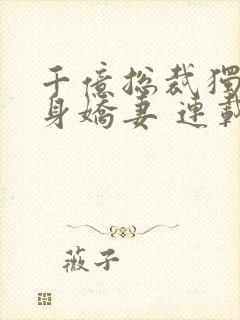 千億总裁獨
身嬌妻 連載
薇子